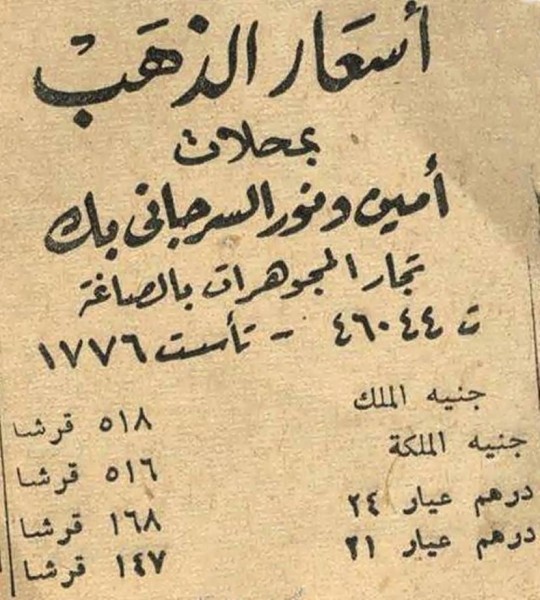 أسعار الذهب
بمحلات
أمين ونور السرجانى بك
تجار المجوهرات بالصاغة
ت ٤٦٠٤٤ - تأسست ١٧٧٦
جنيه الملك ٥١٨ قرشا
جنيه الملكة ٥١٦ قرشا
درهم عيار ٢٤ ١٦٨ قرشا
درهم عيار ٢١ ١٤٧ قرشا